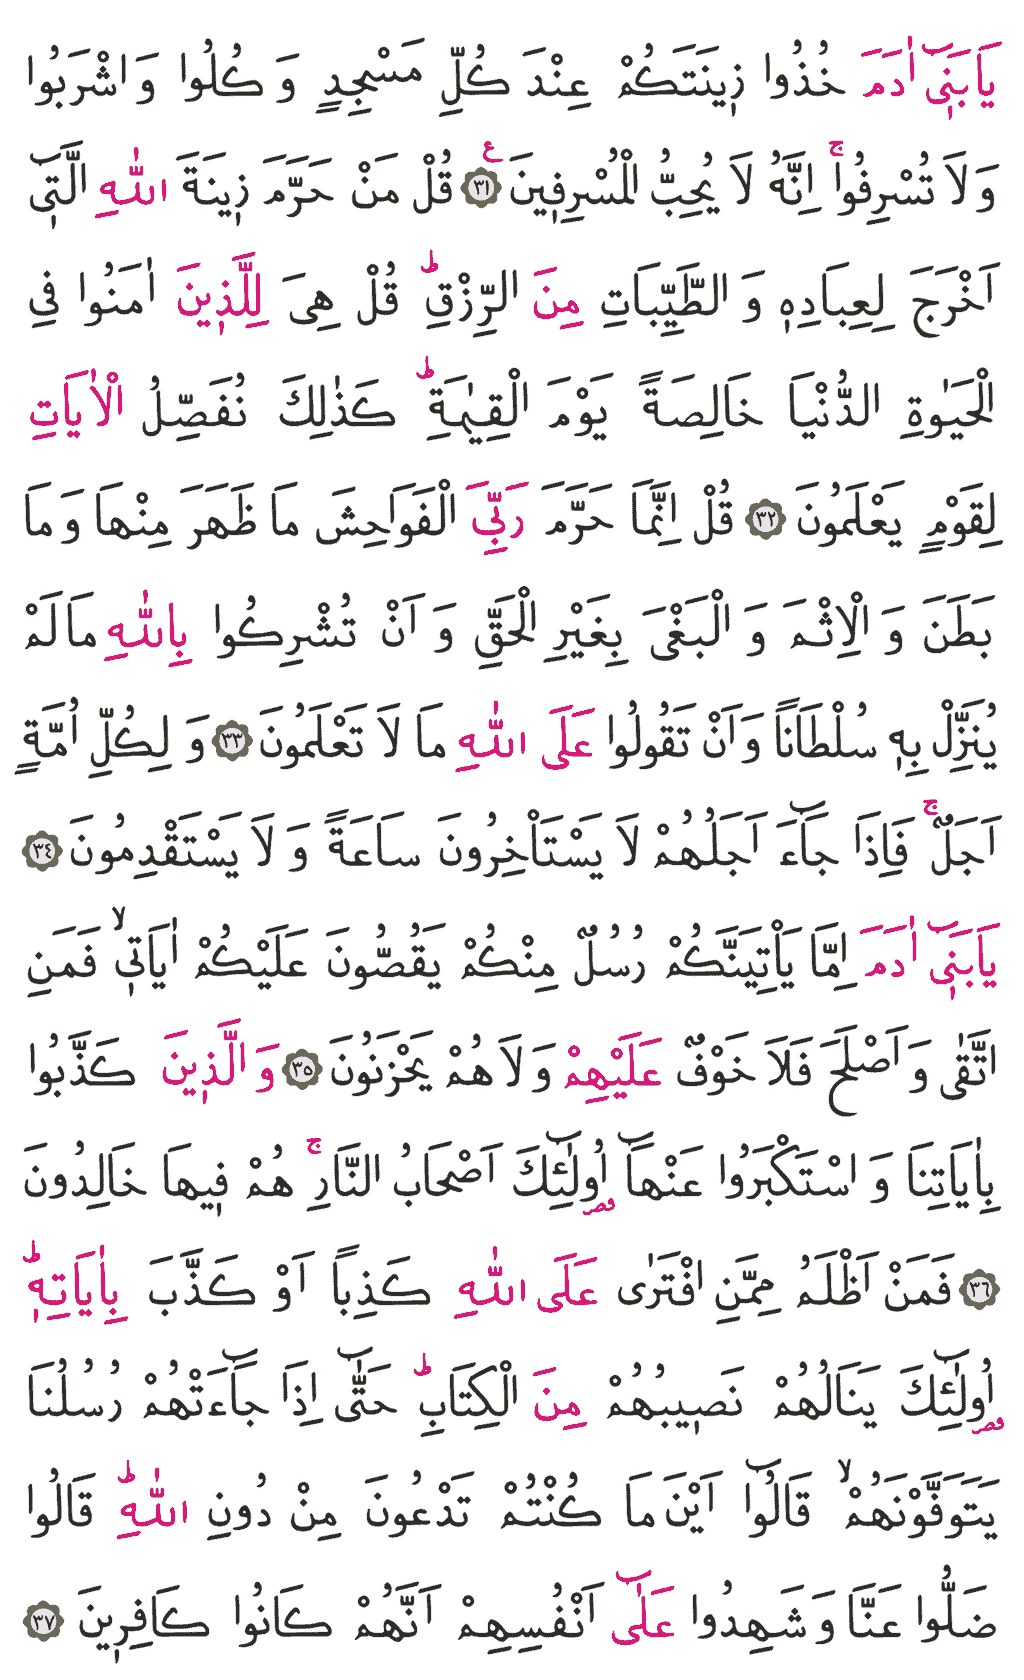 يَابَنٖٓي اٰدَمَ خُذُوا زٖينَتَكُمْ عِنْدَ كُلِّ مَسْجِدٍ وَ كُلُوا وَ اشْرَبُوا
وَ لَا تُسْرِفُواۚ اِنَّهُ لَا يُحِبُّ الْمُسْرِفٖينَ ﴿٣١﴾ ع قُلْ مَنْ حَرَّمَ زٖينَةَ اللّٰهِ الَّتٖٓي
اَخْرَجَ لِعِبَادِهٖ وَ الطَّيِّبَاتِ مِنَ الرِّزْقِؕ قُلْ هِىَ لِلَّذٖينَ اٰمَنُوا فِي
الْحَيٰوةِ الدُّنْيَا خَالِصَةً يَوْمَ الْقِيٰمَةِؕ كَذٰلِكَ نُفَصِّلُ الْاٰيَاتِ
لِقَوْمٍ يَعْلَمُونَ ﴿٣٢﴾ قُلْ اِنَّمَا حَرَّمَ رَبِّيَ الْفَوَاحِشَ مَا ظَهَرَ مِنْهَا وَ مَا
بَطَنَ وَ الْاِثْمَ وَ الْبَغْىَ بِغَيْرِ الْحَقِّ وَ اَنْ تُشْرِكُوا بِاللّٰهِ مَا لَمْ
يُنَزِّلْ بِهٖ سُلْطَانًا وَ اَنْ تَقُولُوا عَلَى اللّٰهِ مَا لَا تَعْلَمُونَ ﴿٣٣﴾ وَ لِكُلِّ اُمَّةٍ
اَجَلٌۚ فَاِذَا جَٓاءَ اَجَلُهُمْ لَا يَسْتَاْخِرُونَ سَاعَةً وَ لَا يَسْتَقْدِمُونَ ﴿٣٤﴾
يَابَنٖٓي اٰدَمَ اِمَّا يَاْتِيَنَّكُمْ رُسُلٌ مِنْكُمْ يَقُصُّونَ عَلَيْكُمْ اٰيَاتٖيۙ فَمَنِ
اتَّقٰى وَ اَصْلَحَ فَلَا خَوْفٌ عَلَيْهِمْ وَ لَا هُمْ يَحْزَنُونَ ﴿٣٥﴾ وَ الَّذٖينَ كَذَّبُوا
بِاٰيَاتِنَا وَ اسْتَكْبَرُوا عَنْهَٓا اُو۬لٰٓئِكَ اَصْحَابُ النَّارِۚ هُمْ فٖيهَا خَالِدُونَ
﴿٣٦﴾ فَمَنْ اَظْلَمُ مِمَّنِ افْتَرٰى عَلَى اللّٰهِ كَذِبًا اَوْ كَذَّبَ بِاٰيَاتِهٖؕ
اُو۬لٰٓئِكَ يَنَالُهُمْ نَصٖيبُهُمْ مِنَ الْكِتَابِؕ حَتّٰٓى اِذَا جَٓاءَتْهُمْ رُسُلُنَا
يَتَوَفَّوْنَهُمْۙ قَالُٓوا اَيْنَ مَا كُنْتُمْ تَدْعُونَ مِنْ دُونِ اللّٰهِؕ قَالُوا
ضَلُّوا عَنَّا وَ شَهِدُوا عَلٰٓى اَنْفُسِهِمْ اَنَّهُمْ كَانُوا كَافِرٖينَ ﴿٣٧﴾